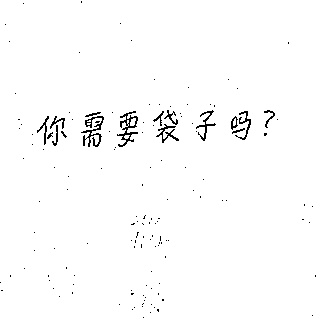 你需要袋子吗?